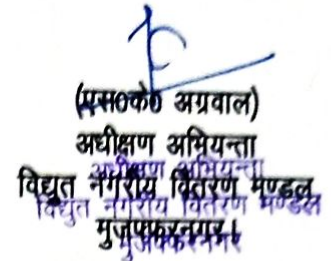 (एस०के० अग्रवाल)
अधीक्षण अभियन्ता
अधीक्षण अभियन्ता
विद्युत नगरीय वितरण मण्डल
विद्युत नगरीय वितरण मण्डल
मुजफ्फरनगर।
मुजफ्फरनगर